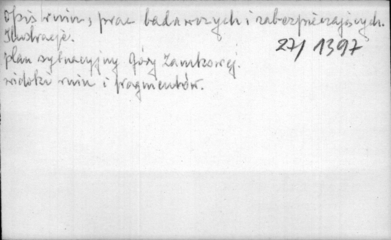 Opis ruin, prac badawczych i zabezpieczających.
Ilustracje.
27/1397
plan sytuacyjny Góry Zamkowej.
widoki ruin i fragmentów.